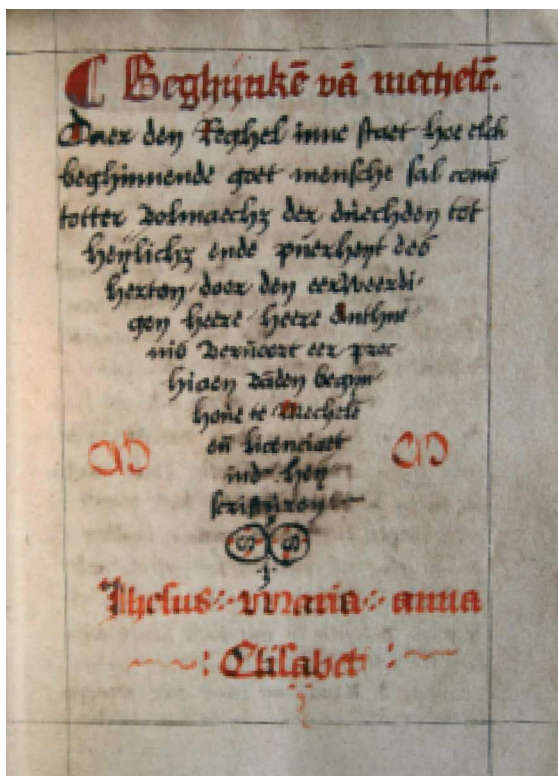 Beghijnkē vā mechelē.
Daer den Reghel inne staet hoe elck
beghinnende goet mensche sal comē
totter der duechden tot
ende puerheyt des
herten door den eerweerdi-
gen heere heere Anthoe
nis eer proc
hiaen vāden begijn
houe te Mechelē
eñ licenciaet
inder hey
Ihesus Maria anna
Elisabet